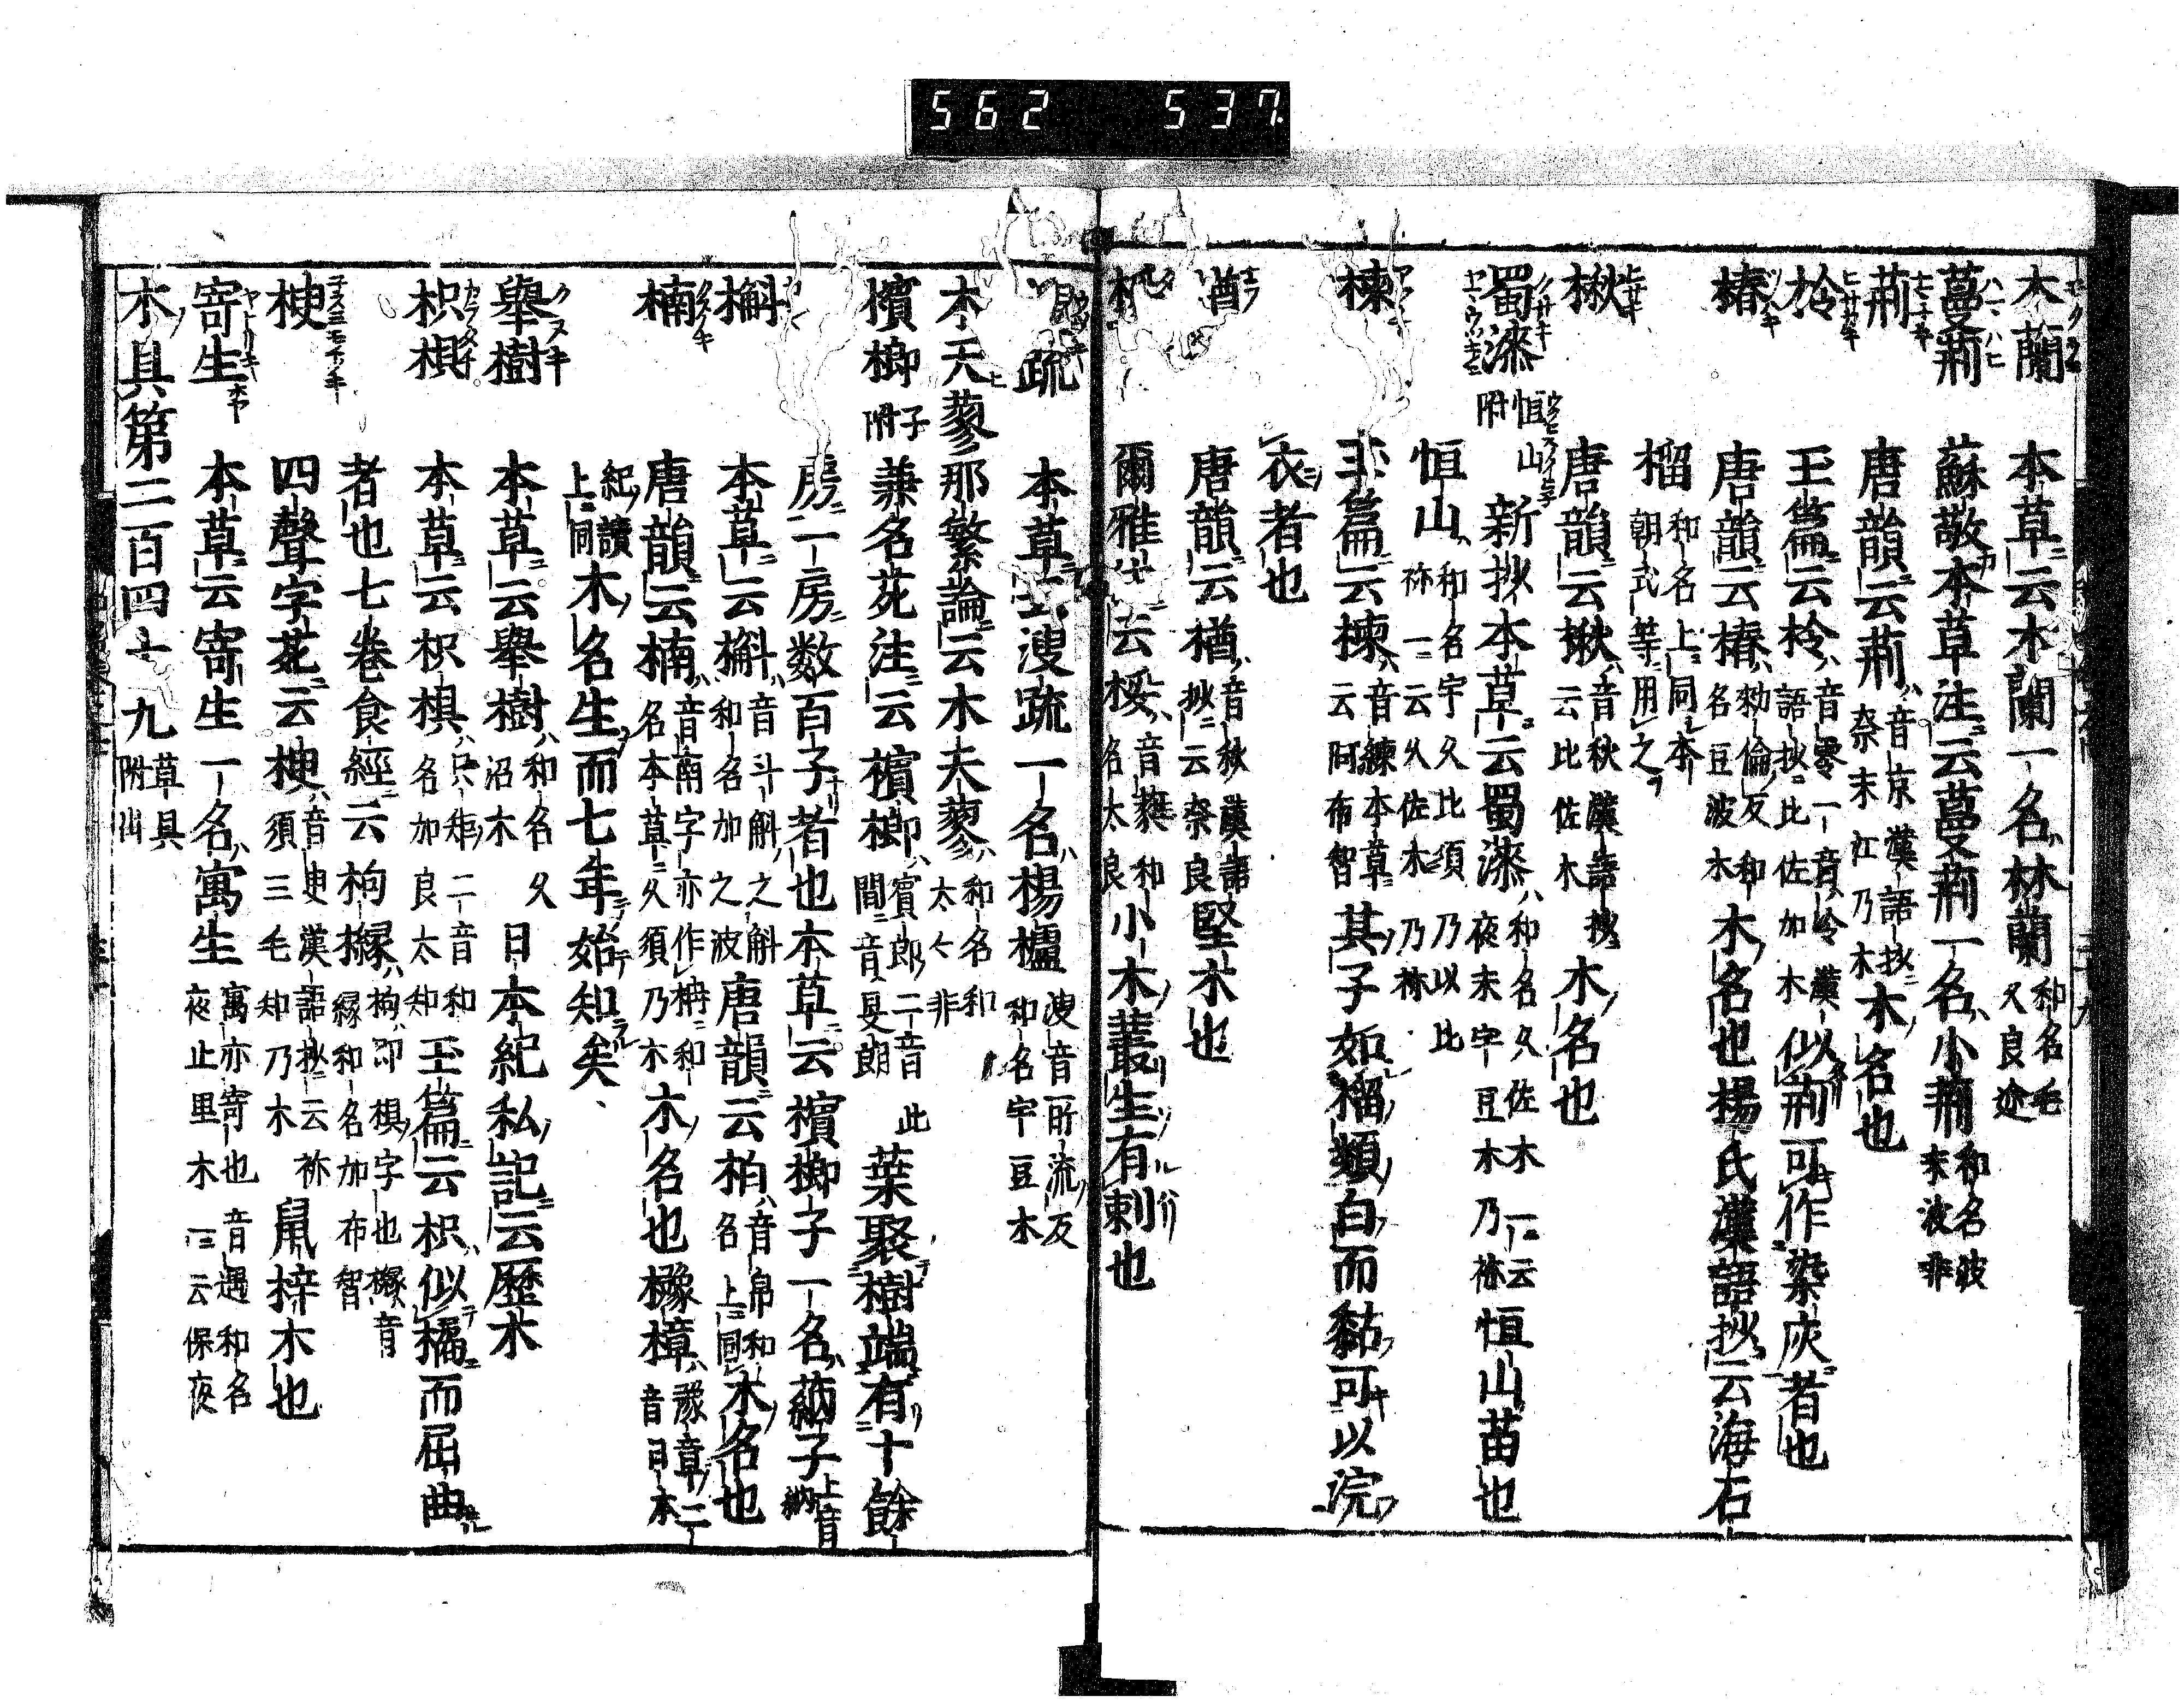 562 537.
木蘭 本草云木蘭一名林蘭 和名毛久良迩
蔓荊 蘇敬本草注云蔓荊一名小荊 和名波末波非
荊 唐韻云荊 音京漢語抄奈末江乃木 木名也
柃 玉篇云柃 音零一音冷漢語抄比佐加木 似荊可作染灰者也
椿 唐韻云椿 勑倫反和名豆波木 木名也楊氏漢語抄云海石
榴 和名上同本朝式等用之
楸 唐韻云楸 音秋漢語抄云比佐木 木名也
蜀漆 恒山附 新抄本草云蜀漆 和名久佐木一云夜末宇豆木乃祢 恒山苗也
恒山 和名宇久比須乃以比祢一云久佐木乃祢
楝 玉篇云楝 音練本草云阿布智 其子如榴類白而黏可以浣
衣者也
楢 唐韻云楢 音秋漢語抄云奈良 堅木也
爾雅 云桵 音蕤和名太良 小木叢生有刺也
疏 本草云溲疏一名楊櫨 溲音所流反和名宇豆木
木天蓼 那繁論云木夫蓼 和名和太々非
檳榔 子附 兼名苑注云檳榔 賓郎二音此間音旻朗 葉聚樹端有十餘
房一房数百子者也本草云檳榔子一名蒳子 上音納
槲 本草云槲 音斗斛之斛和名加之波 唐韻云柏 音帛和名上同 木名也
楠 唐韻云楠 音南字亦作柟和名本草久須乃木 木名也櫲樟 豫章二音日本
紀讀上同 木名生而七年始知矣
舉樹 本草云舉樹 和名久沼木 日本紀私記云歷木
枳椇 本草云枳椇 只矩二音和名加良太知 玉篇云枳似橘而屈曲
者也七卷食經云枸櫞 枸即椇字也櫞音縁和名加布智
楰 四聲字苑云楰 音臾漢語抄云祢須三毛知乃木 鼠梓木也
寄生 本草云寄生一名寓生 寓亦寄也音遇和名夜止里木一云保夜
木具第二百四十九 草具附出